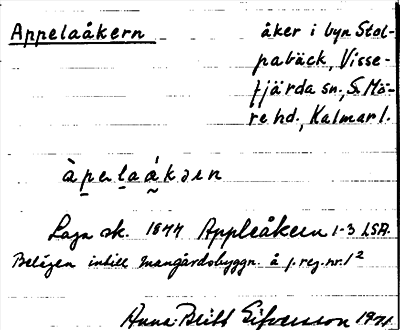 Appelaåkern
åker i byn Stol-
pabäck, Visse-
fjärda sn., S. Mö-
re hd., Kalmar l.
àpelaákəɪn
Laga sk. 1844 Appleåkern 1-3 LSA.
Belägen intill mangårdsbyggn. å j.reg.nr. 1²
Anna-Britt Sifversson 1971